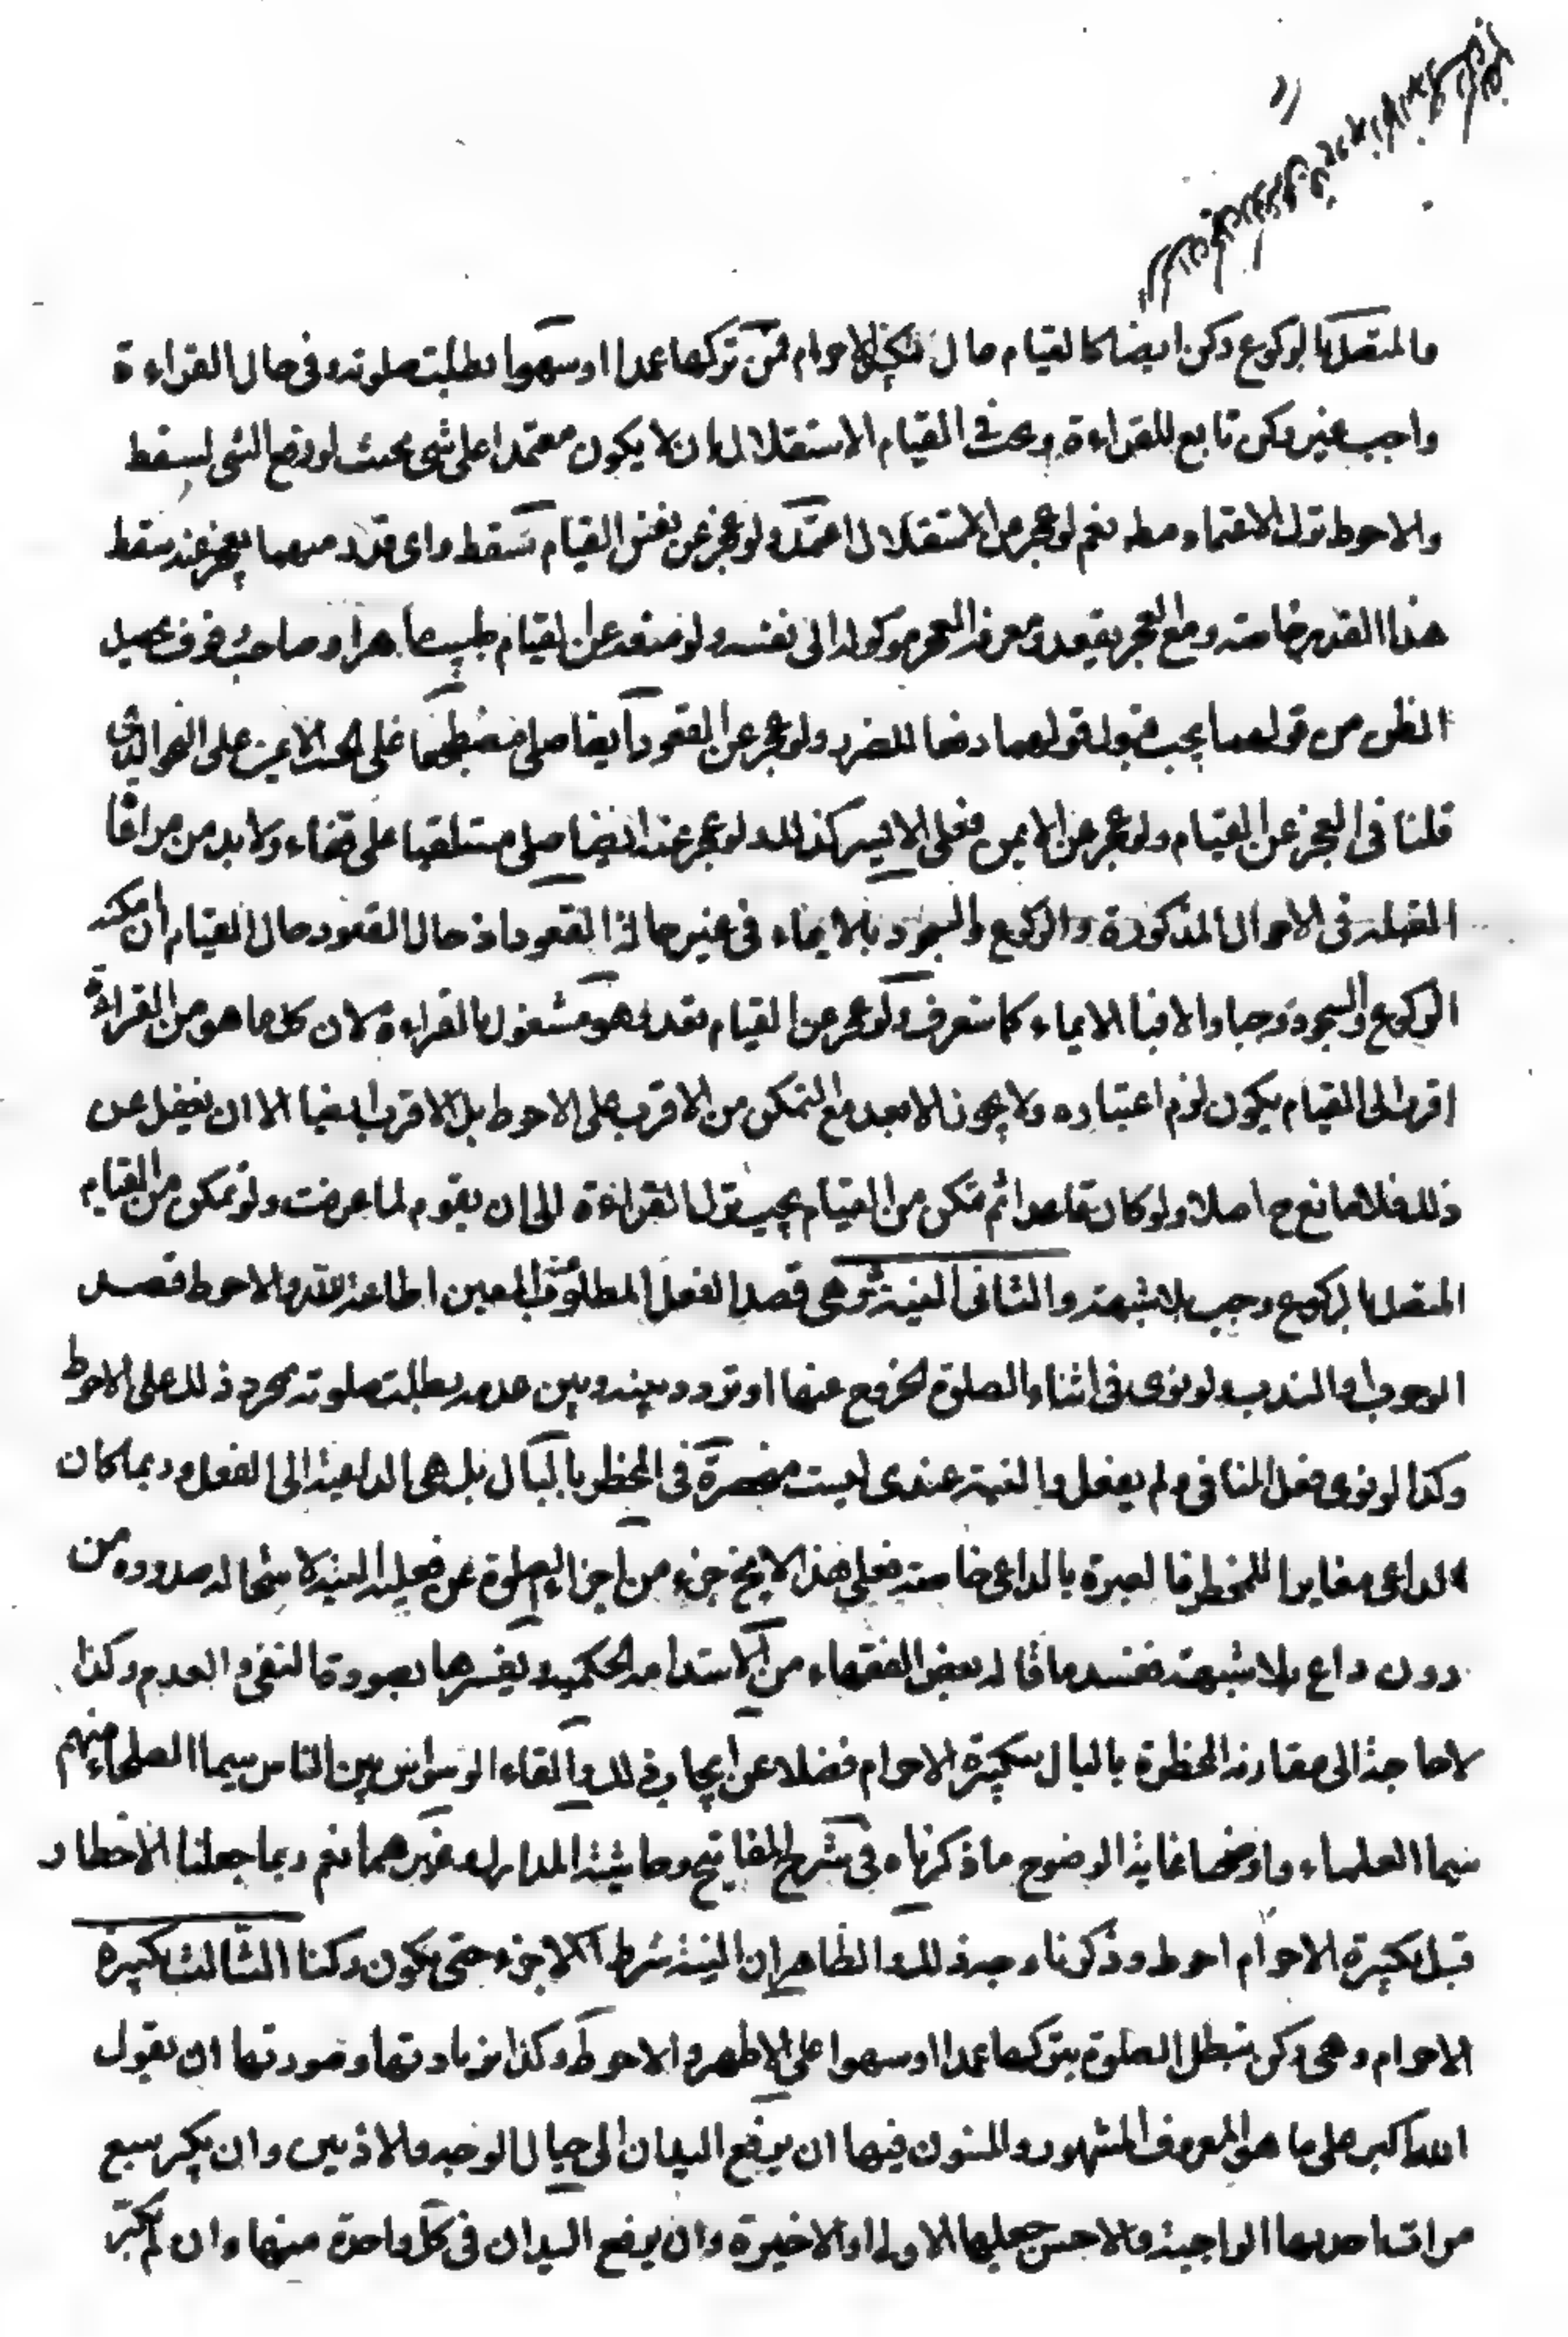 والمتصل بالركوع ركن ايضا كالقيام حال تكبيرة الاحرام فمن تركها عمدا او سهوا بطلت صلوته وفى حال القراءة
واجب غير ركن تابع للقراءة ويجب فى القيام الاستقلال بان لا يكون معتمدا على شئ بحيث لو رفع الشئ لسقط
والاحوط ترك الاعتماد مطه نعم لو عجز عن الاستقلال اعتمد ولو عجز عن نفس القيام سقط واى قدر منهما يعجز عنه سقط
هذا القدر خاصته ومع العجز يقعد ومعرفة العجز موكولة الى نفسه ولو منعه عن القيام طبيب ماهر او صاحب وقوف يحصل
الظن من قولهما يجب قبول قولهما دفعا للضرر ولو عجز عن القعود ايضا صلى مضطجعا على الجنب الايمن على النحو الذى
قلنا فى العجز عن القيام ولو عجز عن الايمن فعلى الايسر كذلك ولو عجز عنه ايضا صلى مستلقيا على قفاء ولا بد من مراعاة
القبلة فى الاحوال المذكورة والركوع والسجود بالايماء فى غير حالة القعود اذ حال القعود حال القيام ان امكنه
الركوع والسجود وجبا والا فبالايماء كما ستعرف ولو عجز عن القيام بقعد وهو مشغول بالقراءة لان كل ما هو من القراءة
اقرب الى القيام يكون لزم اعتباره ولا يجوز الابعد مع التمكن من الاقرب على الاحوط بل الاقرب ايضا الا ان يغفل عن
ذلك فلا مانع ح اصلا ولو كان قاعدا ثم تمكن من القيام يجب ترك القراءة الى ان يقوم لما عرفت ولو تمكن من القيام
المتصل بالركوع وجب بلا شبهة والثانى النية وهى قصد الفعل المطلوب المعين اطاعة لله والاحوط قصد
الوجوب او الندب ولو نوى فى اثناء الصلوة الخروج عنها او تردد بينه وبين عدمه بطلت صلوته بمجرد ذلك على الاحوط
وكذا لو نوى فعل المنافى ولم يفعل والنية عندى ليست منحصرة فى المخطر بالبال بل هى الداعية الى الفعل وربما كان
الداعى مغايرا للمخطر فالعبرة بالداعى خاصته فعلى هذا لا يخ جزء من اجزاء الصلوة عن فعلية النية لاستحالة صدوره من
دون داع بلا شبهة ففسد ما قاله بعض الفقهاء من الاستدامة الحكمية ويفسرها بصورة النفى والعدم وكذا
لا حاجة الى مقارنة المخطرة بالبال بتكبيرة الاحرام فضلا عن ايجاب ذلك والقاء الوسواس بين الناس سيما الصلحاء منهم
سيما العلماء واوضحنا غاية الوضوح ما ذكرناه فى شرح المفاتيح وحاشية المدارك وغيرهما نعم ربما جعلنا الاخطار
قبل تكبيرة الاحرام احوط وذكرنا وجه ذلك والظاهر ان النية شرط لا جزء حتى يكون ركنا الثالث تكبيرة
الاحرام وهى ركن تبطل الصلوة بتركها عمدا او سهوا على الاظهر والاحوط وكذا بزيادتها وصورتها ان يقول
الله اكبر على ما هو المعروف المشهور والمسنون فيها ان يرفع اليدان الى حيال الوجه والاذنين وان يكبر سبع
مرات احديها الواجبة والاحسن جعلها الاولى او الاخيرة وان يرفع اليدان فى كل واحدة منها وان لم يكبر